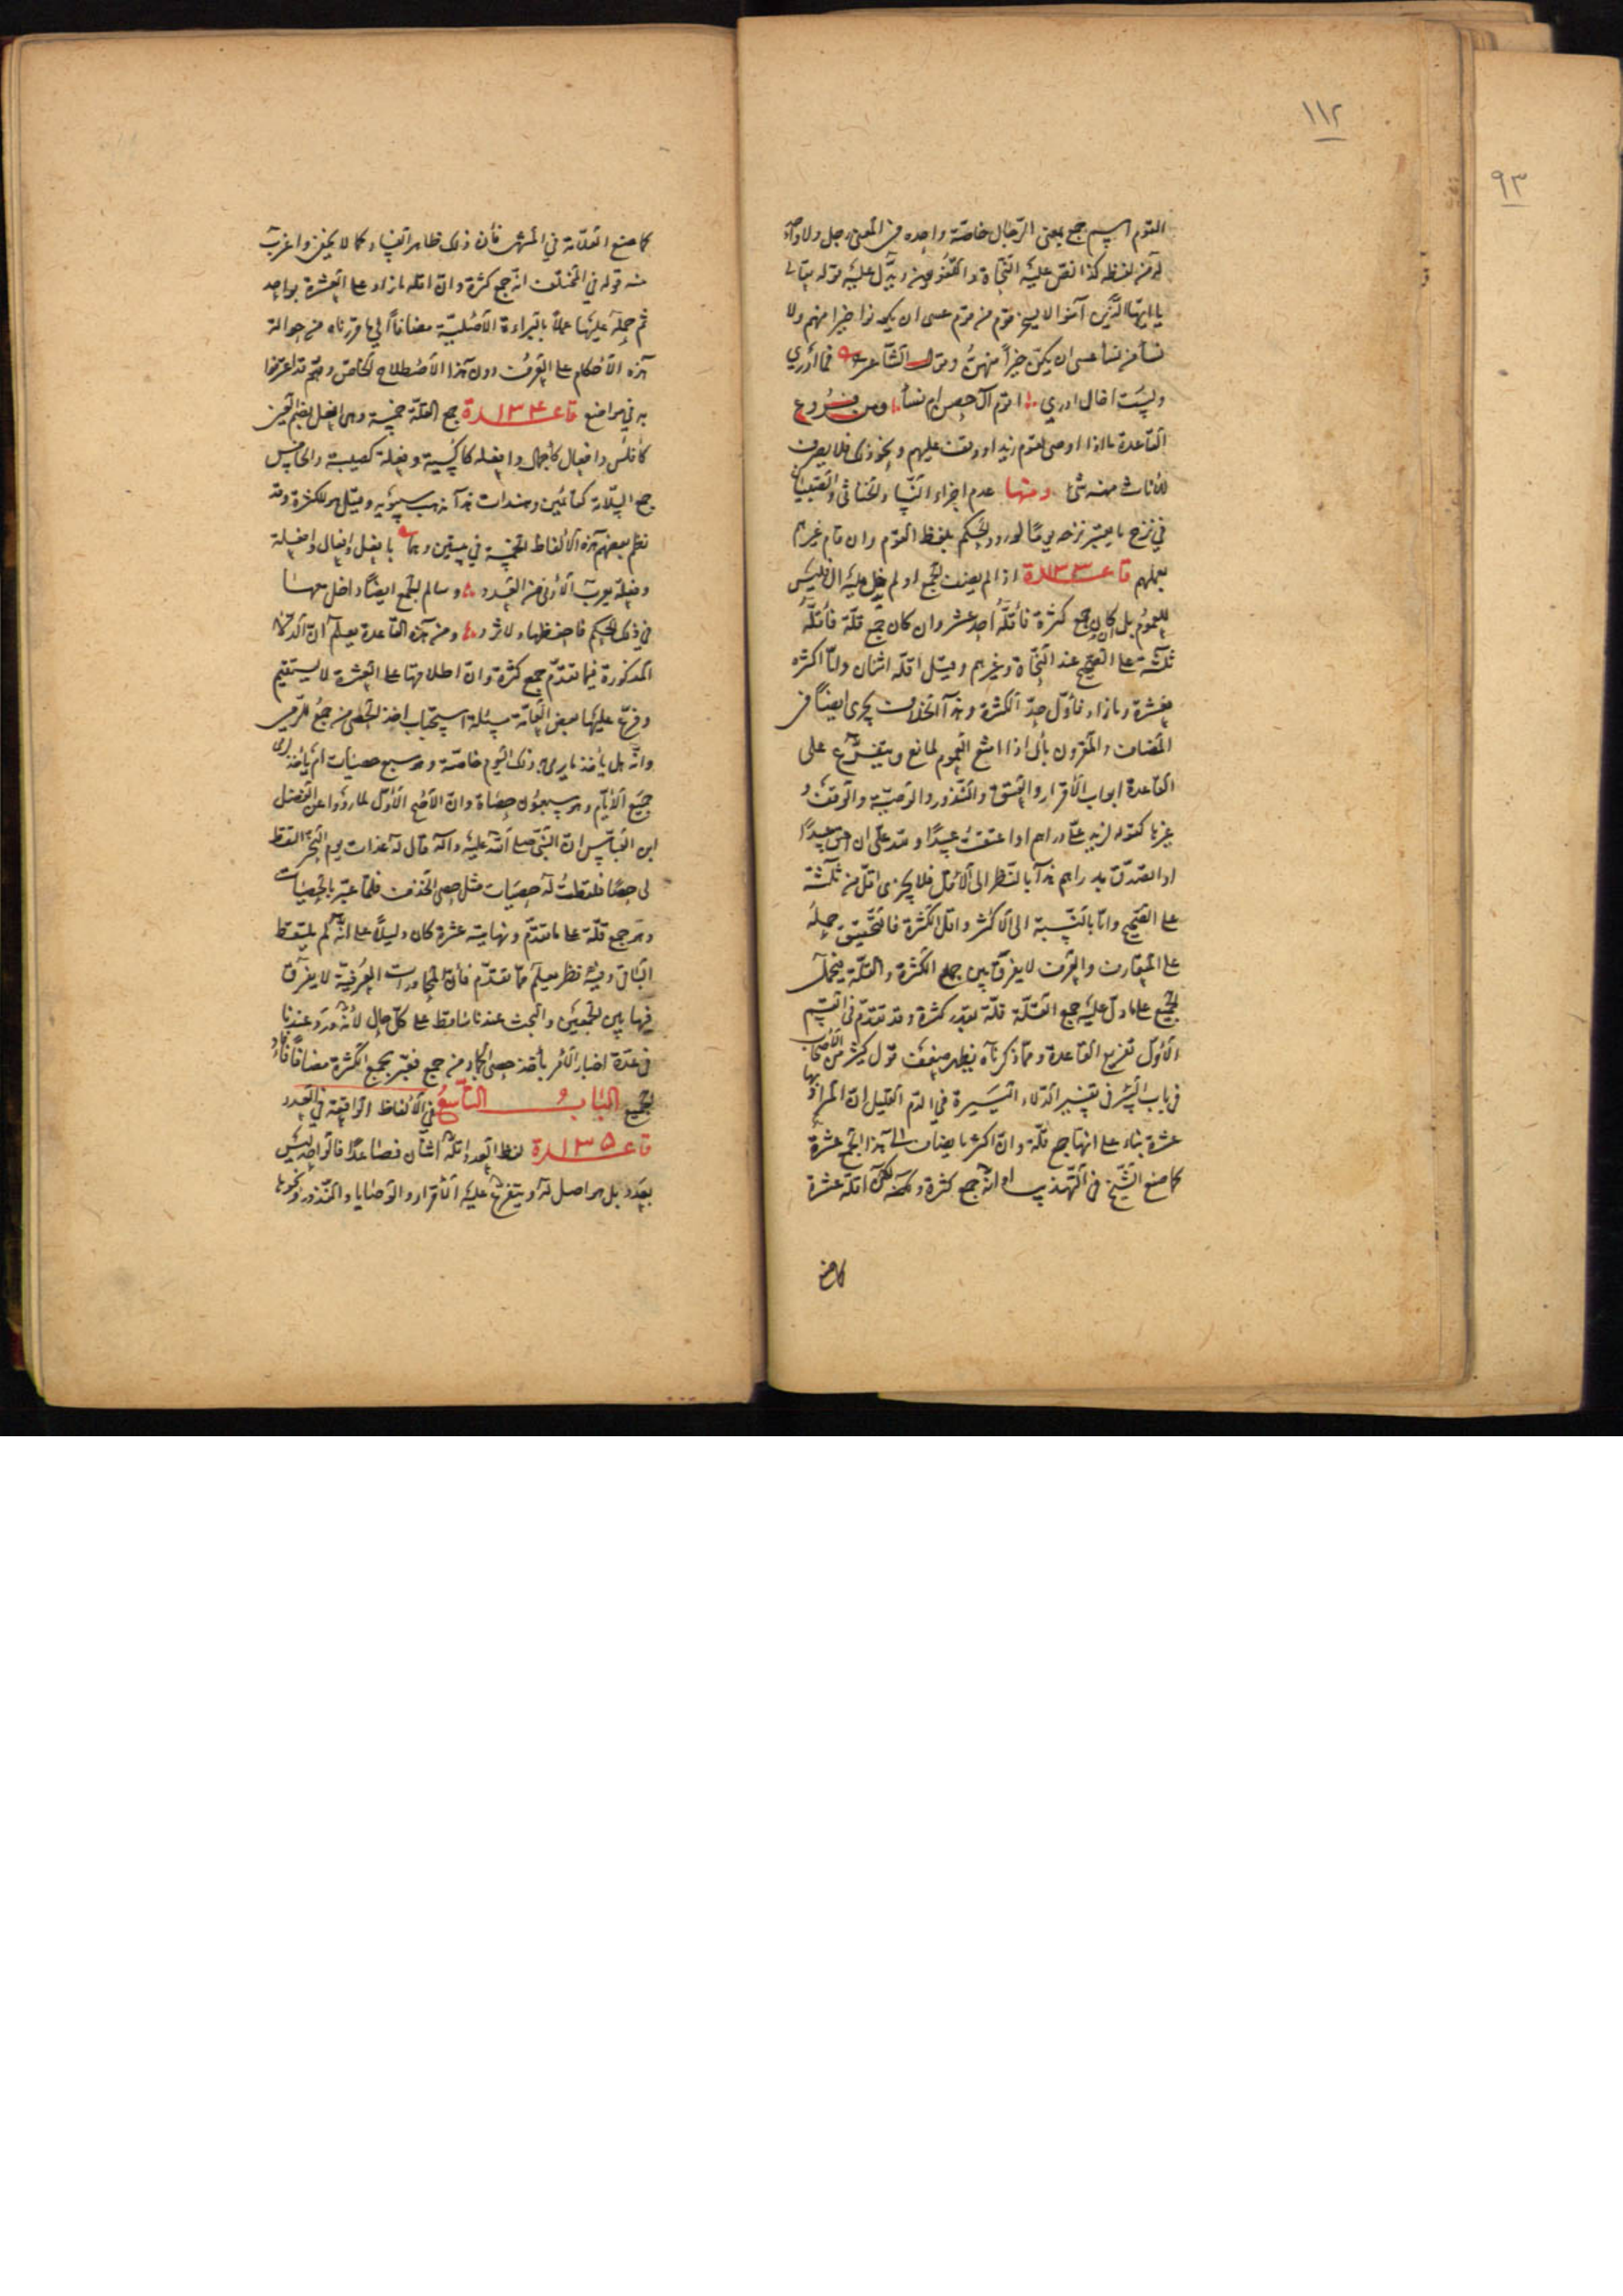 ١١٢
٩٣
القوم اسم جمع بمعنى الرّجال خاصّة واحده في المعنى رجل ولا واحد
له من لفظه كذا نصّ عليه النّحاة واللّغويّون ويدلّ عليه قوله تعالى
يا ايّها الّذين آمنوا لا يسخر قوم من قوم عسى ان يكونوا خيرا منهم ولا
نساء من نساء عسى ان يكنّ خيراً منهنّ وقول الشّاعر فما ادري
ولست اخال ادري اقوم آل حصن ام نساء ومن فروع
القاعدة ما اذا اوصى لقوم زيد او وقف عليهم ونحو ذلك فلا يصرف
للاناث منه شئ ومنها عدم اجزاء النّساء والخناثى والصّبيان
في نزح ما يعتبر نزحه يومًا لورود الحكم بلفظ القوم وان قام غيرهم
بعملهم قاعـ١٣٣ـدة اذا لم يضف الجمع او لم يدخل عليه ال فليس
للعموم بل ان كان جمع كثرة فأقلّه احد عشر وان كان جمع قلّة فأقلّه
ثلثة على الصّحيح عند النّحاة وغيرهم وقيل اقلّه اثنان وامّا اكثره
فعشرة وما زاد فأوّل حدّ الكثرة وهذا الخلاف يجري ايضًا في
المضاف والمقرون بأل اذا امتنع العموم لمانع ويتفرّع على
القاعدة ابواب الأقرار والعتق والنّذور والوصيّة والوقف و
غيرها كقوله لزيد علىّ دراهم او اعتقت عبيدًا او لله علىّ ان اعتق عبيدًا
او اتصدّق بدراهم هذا بالنّظر الى الأقلّ فلا يجزى اقلّ من ثلثة
على الصّحيح وامّا بالنّسبة الى الأكثر واقلّ الكثرة فالتّحقيق حمله
على المتعارف والعرف لا يفرّق بين جمع الكثرة والقلّة فيحمل
الجميع على ما دلّ عليه جمع القلّة قلّة بقدر كثرة وقد تقدّم في القسم
الأوّل تفريع القاعدة وممّا ذكرناه يظهر ضعف قول كثير من الأصحاب
في باب البئر في تفسير الدّلاء اليسيرة في الدّم القليل انّ المراد بها
عشرة بناء على انها جمع قلّة وانّ اكثر ما يضاف الى هذا الجمع عشرة
كما صنع الشّيخ في التّهذيب او انّه جمع كثرة ولكن اقلّه عشرة
كما صنع
كما صنع العلّامة في المنتهى فأن ذلك ظاهر الفساد كما لا يخفى واغرب
منه قوله في المختلف انّه جمع كثرة وانّ اقلّه ما زاد على العشرة بواحد
ثم حمله عليها عملاً بالبراءة الأصليّة مضافاً الى ما قرّرناه من حوالة
هذه الأحكام على العرف دون هذا الأصطلاح الخاصّ وهم قد اعترفوا
به في مواضع قاعـ١٣٤ـدة جمع القلّة خمسة وهي افعل بضم العين
كأفلس وافعال كأجمال وافعله كاكسية وفعلة كصبية والخامس
جمع السّلامة كمسلمين وهندات هذا مذهب سيبويه وقيل هو للكثرة وقد
نظم بعضهم هذه الألفاظ الخمسة في بيتين وهما بافعل وافعال وافعلة
وفعلة يعرف الأدنى من العدد وسالم الجمع ايضًا داخل معها
في ذلك الحكم فاحفظها ولا تزد ومن هذه القاعدة يعلم انّ الدّلاء
المذكورة فيما تقدّم جمع كثرة وانّ اطلاقها على العشرة لا يستقيم
وفرّع عليها بعض العامّة مسئلة استحباب اخذ الحصى من جمع للرّمي
وانّه هل يأخذ ما يرمى به ذلك اليوم خاصّة وهو سبع حصيات ام يأخذ لرمى
جميع الأيّام وهو سبعون حصاة وانّ الأصح الأوّل لما رووا عن الفضل
ابن العبّاس انّ النّبيّ صلى الله عليه وآله قال له غداة يوم النّحر القط
لى حصًا فلقطت له حصيات مثل حصى الخذف فلمّا عبّر بالحصيات
وهو جمع قلّة على ما تقدّم ونهايته عشرة كان دليلاً على انّه لم يلتقط
الباقى وفيه نظر يعلم ممّا تقدّم فأنّ المحاورات العرفيّة لا يفرّق
فيها بين الجمعين والبحث عندنا ساقط على كلّ حال لأنّه ورد عندنا
في عدّة اخبار الأمر بأخذ حصى الجمار من جمع فعبّر بجمع الكثرة مضافًا فأفاد
الجميع الباب التّاسع في الألفاظ الواقعة في العدد
قاعـ١٣٥ـدة لفظ العدد اقلّه اثنان فصاعدًا فالواحد ليس
بعدد بل هو اصل له ويتفرّع عليه الأقرار والوصايا والنّذور ونحوها